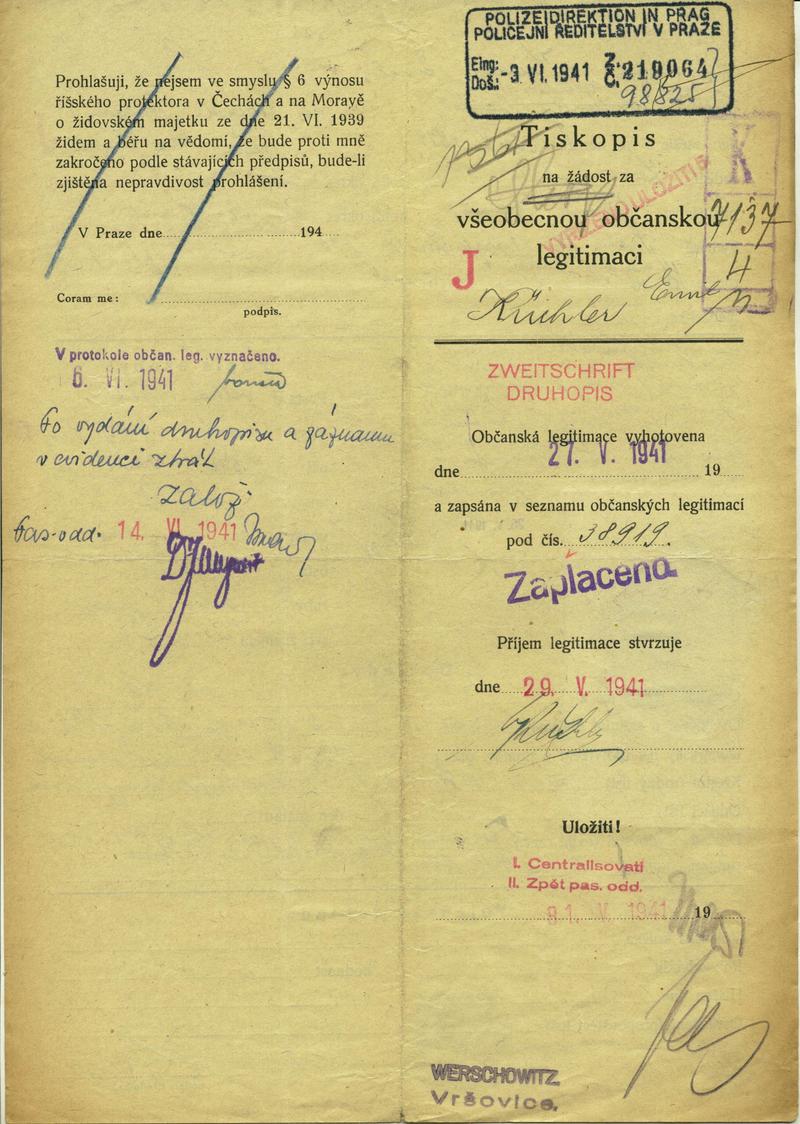 Prohlašuji, že nejsem ve smyslu § 6 výnosu
říšského protektora v Čechách a na Moravě
o židovském majetku ze dne 21. VI. 1939
židem a béřu na vědomí, že bude proti mně
zakročeno podle stávajících předpisů, bude-li
zjištěna nepravdivost prohlášení.
V Praze dne 194
Coram me:
podpis.
V protokole občan. leg. vyznačeno.
6. VI. 1941
Po vydání druhopisu a záznamu
v evidenci ztrát
založ.
Pas-odd. 14. VI. 1941
POLIZEIDIREKTION IN PRAG
POLICEJNÍ ŘEDITELSTVÍ V PRAZE
Eing: Z.
Doš.: -3 VI. 1941 Č. 219064
98825
Tiskopis
na žádost za
všeobecnou občanskou
legitimaci
K
7137
4
J
Küchler Emil
ZWEITSCHRIFT
DRUHOPIS
Občanská legitimace vyhotovena
dne 27. V. 1941 19
a zapsána v seznamu občanských legitimací
pod čís. 38919.
Zaplaceno
Příjem legitimace stvrzuje
dne 29. V. 1941
Uložiti!
I. Centralisovati
II. Zpět pas. odd.
31. V. 1941 19
WERSCHOWITZ
Vršovice.